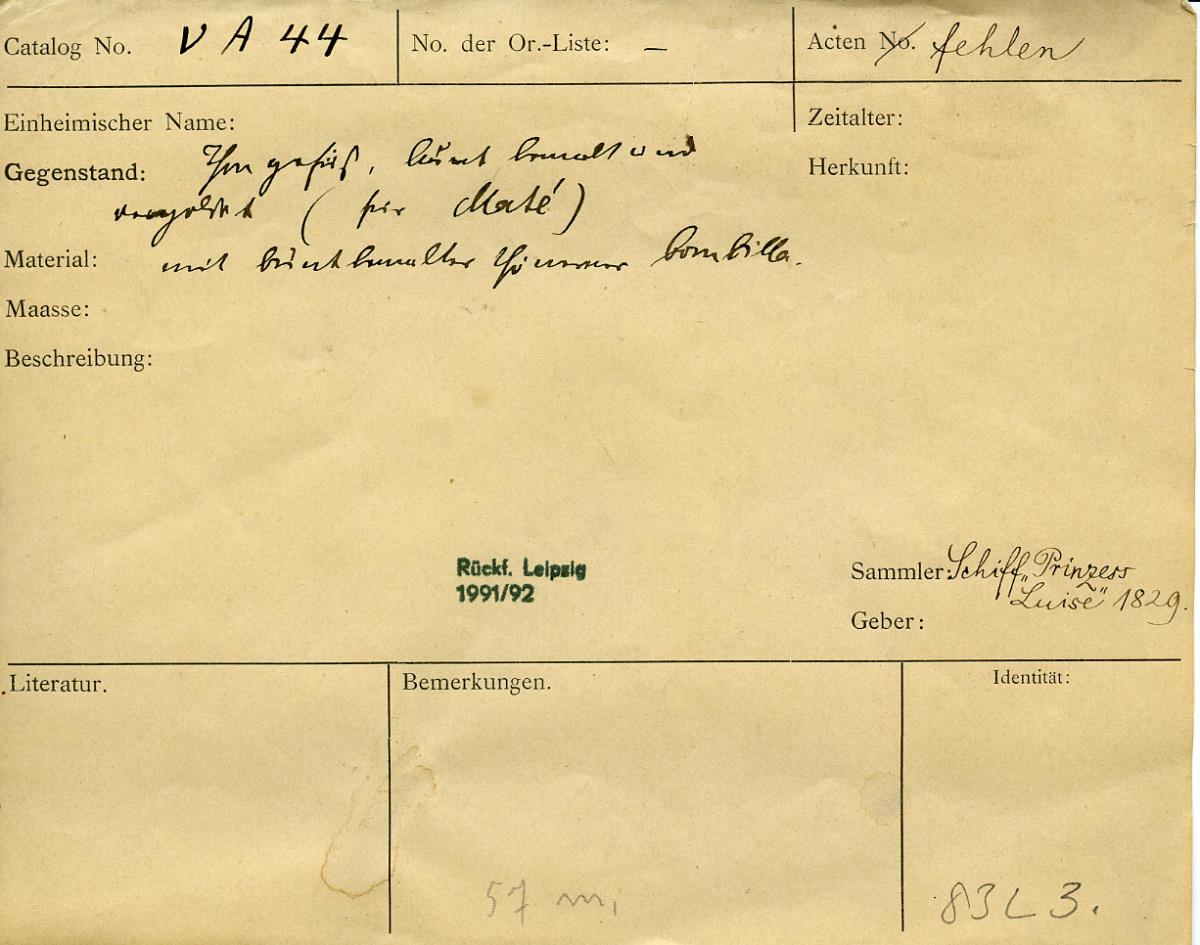 Catalog No. V A 44
No. der Or.-Liste: —
Acten No. fehlen
Einheimischer Name:
Zeitalter:
Gegenstand: Thongefäß, bunt bemalt und
Herkunft:
vergoldet (für Maté)
Material: mit buntbemalter thönerner bombilla.
Maasse:
Beschreibung:
Rückf. Leipzig
1991/92
Sammler: Schiff „Prinzess
Luise" 1829.
Geber:
Literatur.
Bemerkungen.
Identität:
57 m,
83L3.